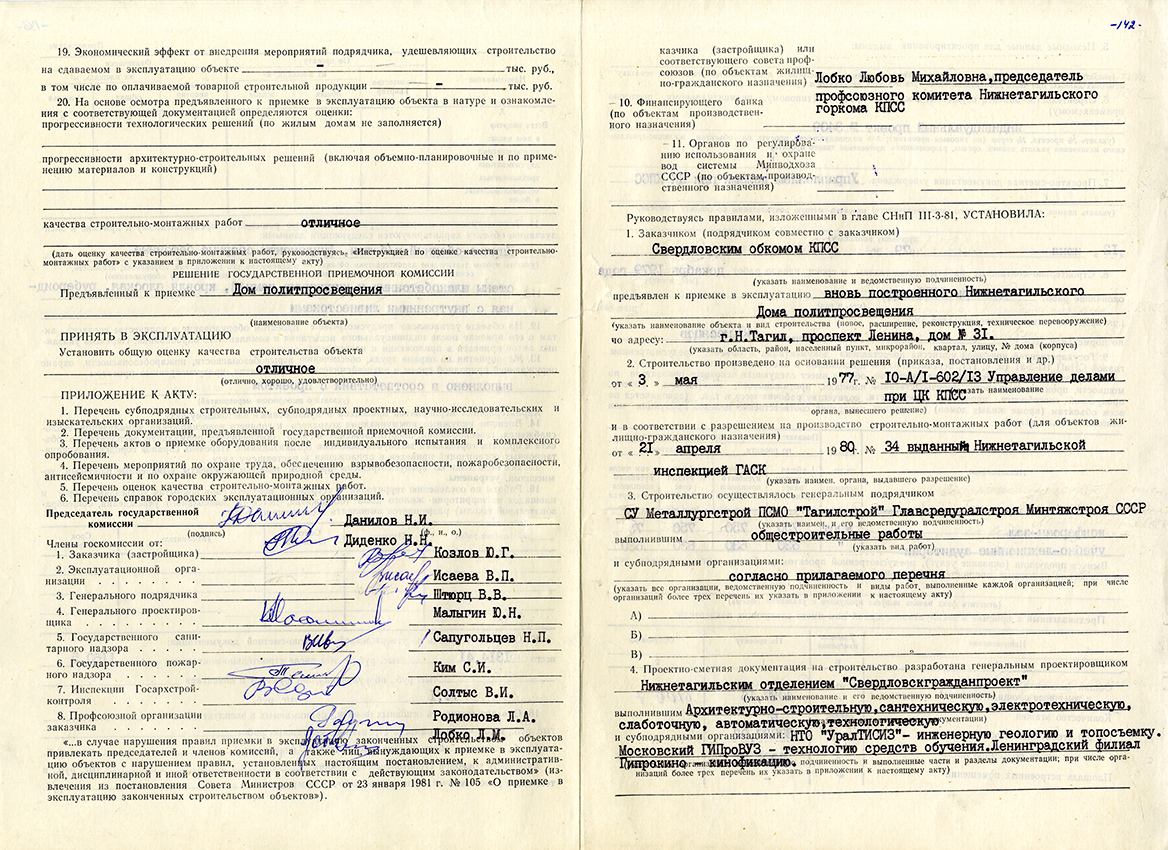 19. Экономический эффект от внедрения мероприятий подрядчика, удешевляющих строительство
на сдаваемом в эксплуатацию объекте – тыс. руб.,
в том числе по оплачиваемой товарной строительной продукции – тыс. руб.
20. На основе осмотра предъявленного к приемке в эксплуатацию объекта в натуре и ознакомле-
ния с соответствующей документацией определяются оценки:
прогрессивности технологических решений (по жилым домам не заполняется)
прогрессивности архитектурно-строительных решений (включая объемно-планировочные и по приме-
нению материалов и конструкций)
качества строительно-монтажных работ отличное
(дать оценку качества строительно-монтажных работ, руководствуясь «Инструкцией по оценке качества строительно-
монтажных работ» с указанием в приложении к настоящему акту)
РЕШЕНИЕ ГОСУДАРСТВЕННОЙ ПРИЕМОЧНОЙ КОМИССИИ
Предъявленный к приемке Дом политпросвещения
(наименование объекта)
ПРИНЯТЬ В ЭКСПЛУАТАЦИЮ
Установить общую оценку качества строительства объекта
отличное
(отлично, хорошо, удовлетворительно)
ПРИЛОЖЕНИЕ К АКТУ:
1. Перечень субподрядных строительных, субподрядных проектных, научно-исследовательских и
изыскательских организаций.
2. Перечень документации, предъявленной государственной приемочной комиссии.
3. Перечень актов о приемке оборудования после индивидуального испытания и комплексного
опробования.
4. Перечень мероприятий по охране труда, обеспечению взрывобезопасности, пожаробезопасности,
антисейсмичности и по охране окружающей природной среды.
5. Перечень оценок качества строительно-монтажных работ.
6. Перечень справок городских эксплуатационных организаций.
Председатель государственной
комиссии Данилов Н.И.
(подпись) (ф., и., о.)
Диденко Н.Н.
Члены госкомиссии от:
1. Заказчика (застройщика) Козлов Ю.Г.
2. Эксплуатационной орга-
низации Исаева В.П.
3. Генерального подрядчика Штюрц В.В.
4. Генерального проектиров-
щика Малыгин Ю.Н.
5. Государственного сани-
тарного надзора Сапугольцев Н.П.
6. Государственного пожар-
ного надзора Ким С.И.
7. Инспекции Госархстрой-
контроля Солтыс В.И.
8. Профсоюзной организации
заказчика Родионова Л.А.
Лобко Л.М.
«...в случае нарушения правил приемки в эксплуатацию законченных строительством объектов
привлекать председателей и членов комиссий, а также лиц, вынуждающих к приемке в эксплуата-
цию объектов с нарушением правил, установленных настоящим постановлением, к административ-
ной, дисциплинарной и иной ответственности в соответствии с действующим законодательством» (из-
влечения из постановления Совета Министров СССР от 23 января 1981 г. № 105 «О приемке в
эксплуатацию законченных строительством объектов»).
-142-
казчика (застройщика) или
соответствующего совета проф-
союзов (по объектам жилищ-
но-гражданского назначения) Лобко Любовь Михайловна,председатель
профсоюзного комитета Нижнетагильского
горкома КПСС
10. Финансирующего банка
(по объектам производствен-
ного назначения)
11. Органов по регулирова-
нию использования и охране
вод системы Минводхоза
СССР (по объектам производ-
ственного назначения)
Руководствуясь правилами, изложенными в главе СНиП III-3-81, УСТАНОВИЛА:
1. Заказчиком (подрядчиком совместно с заказчиком)
Свердловским обкомом КПСС
(указать наименование и ведомственную подчиненность)
предъявлен к приемке в эксплуатацию вновь построенного Нижнетагильского
Дома политпросвещения
(указать наименование объекта и вид строительства (новое, расширение, реконструкция, техническое перевооружение)
по адресу: г.Н.Тагил, проспект Ленина, дом № 31.
(указать область, район, населенный пункт, микрорайон, квартал, улицу, № дома (корпуса)
2. Строительство произведено на основании решения (приказа, постановления и др.)
от « 3 » мая 1977г. № IO-А/I-602/I3 Управление делами
при ЦК КПСС (указать наименование
органа, вынесшего решение)
и в соответствии с разрешением на производство строительно-монтажных работ (для объектов жи-
лищно-гражданского назначения)
от « 2I » апреля 1980г. № 34 выданный Нижнетагильской
инспекцией ГАСК
(указать наимен. органа, выдавшего разрешение)
3. Строительство осуществлялось генеральным подрядчиком
СУ Металлургстрой ПСМО "Тагилстрой" Главсредуралстроя Минтяжстроя СССР
(указать наимен. и его ведомственную подчиненность)
выполнившим общестроительные работы
(указать вид работ)
и субподрядными организациями:
согласно прилагаемого перечня
(указать все организации, ведомственную подчиненность и виды работ, выполненные каждой организацией; при числе
организаций более трех перечень их указать в приложении к настоящему акту)
А)
Б)
В)
4. Проектно-сметная документация на строительство разработана генеральным проектировщиком
Нижнетагильским отделением "Свердловскгражданпроект"
(указать наименование и его ведомственную подчиненность)
выполнившим Архитектурно-строительную,сантехническую,электротехническую,
слаботочную, автоматическую,технологическую документации)
и субподрядными организациями: НТО "УралТИСИЗ"- инженерную геологию и топосъемку.
Московский ГИПроВУЗ - технологию средств обучения.Ленинградский филиал
Гипрокино - кинофикацию. подчиненность и выполненные части и разделы документации; при числе орга-
низаций более трех перечень их указать в приложении к настоящему акту)